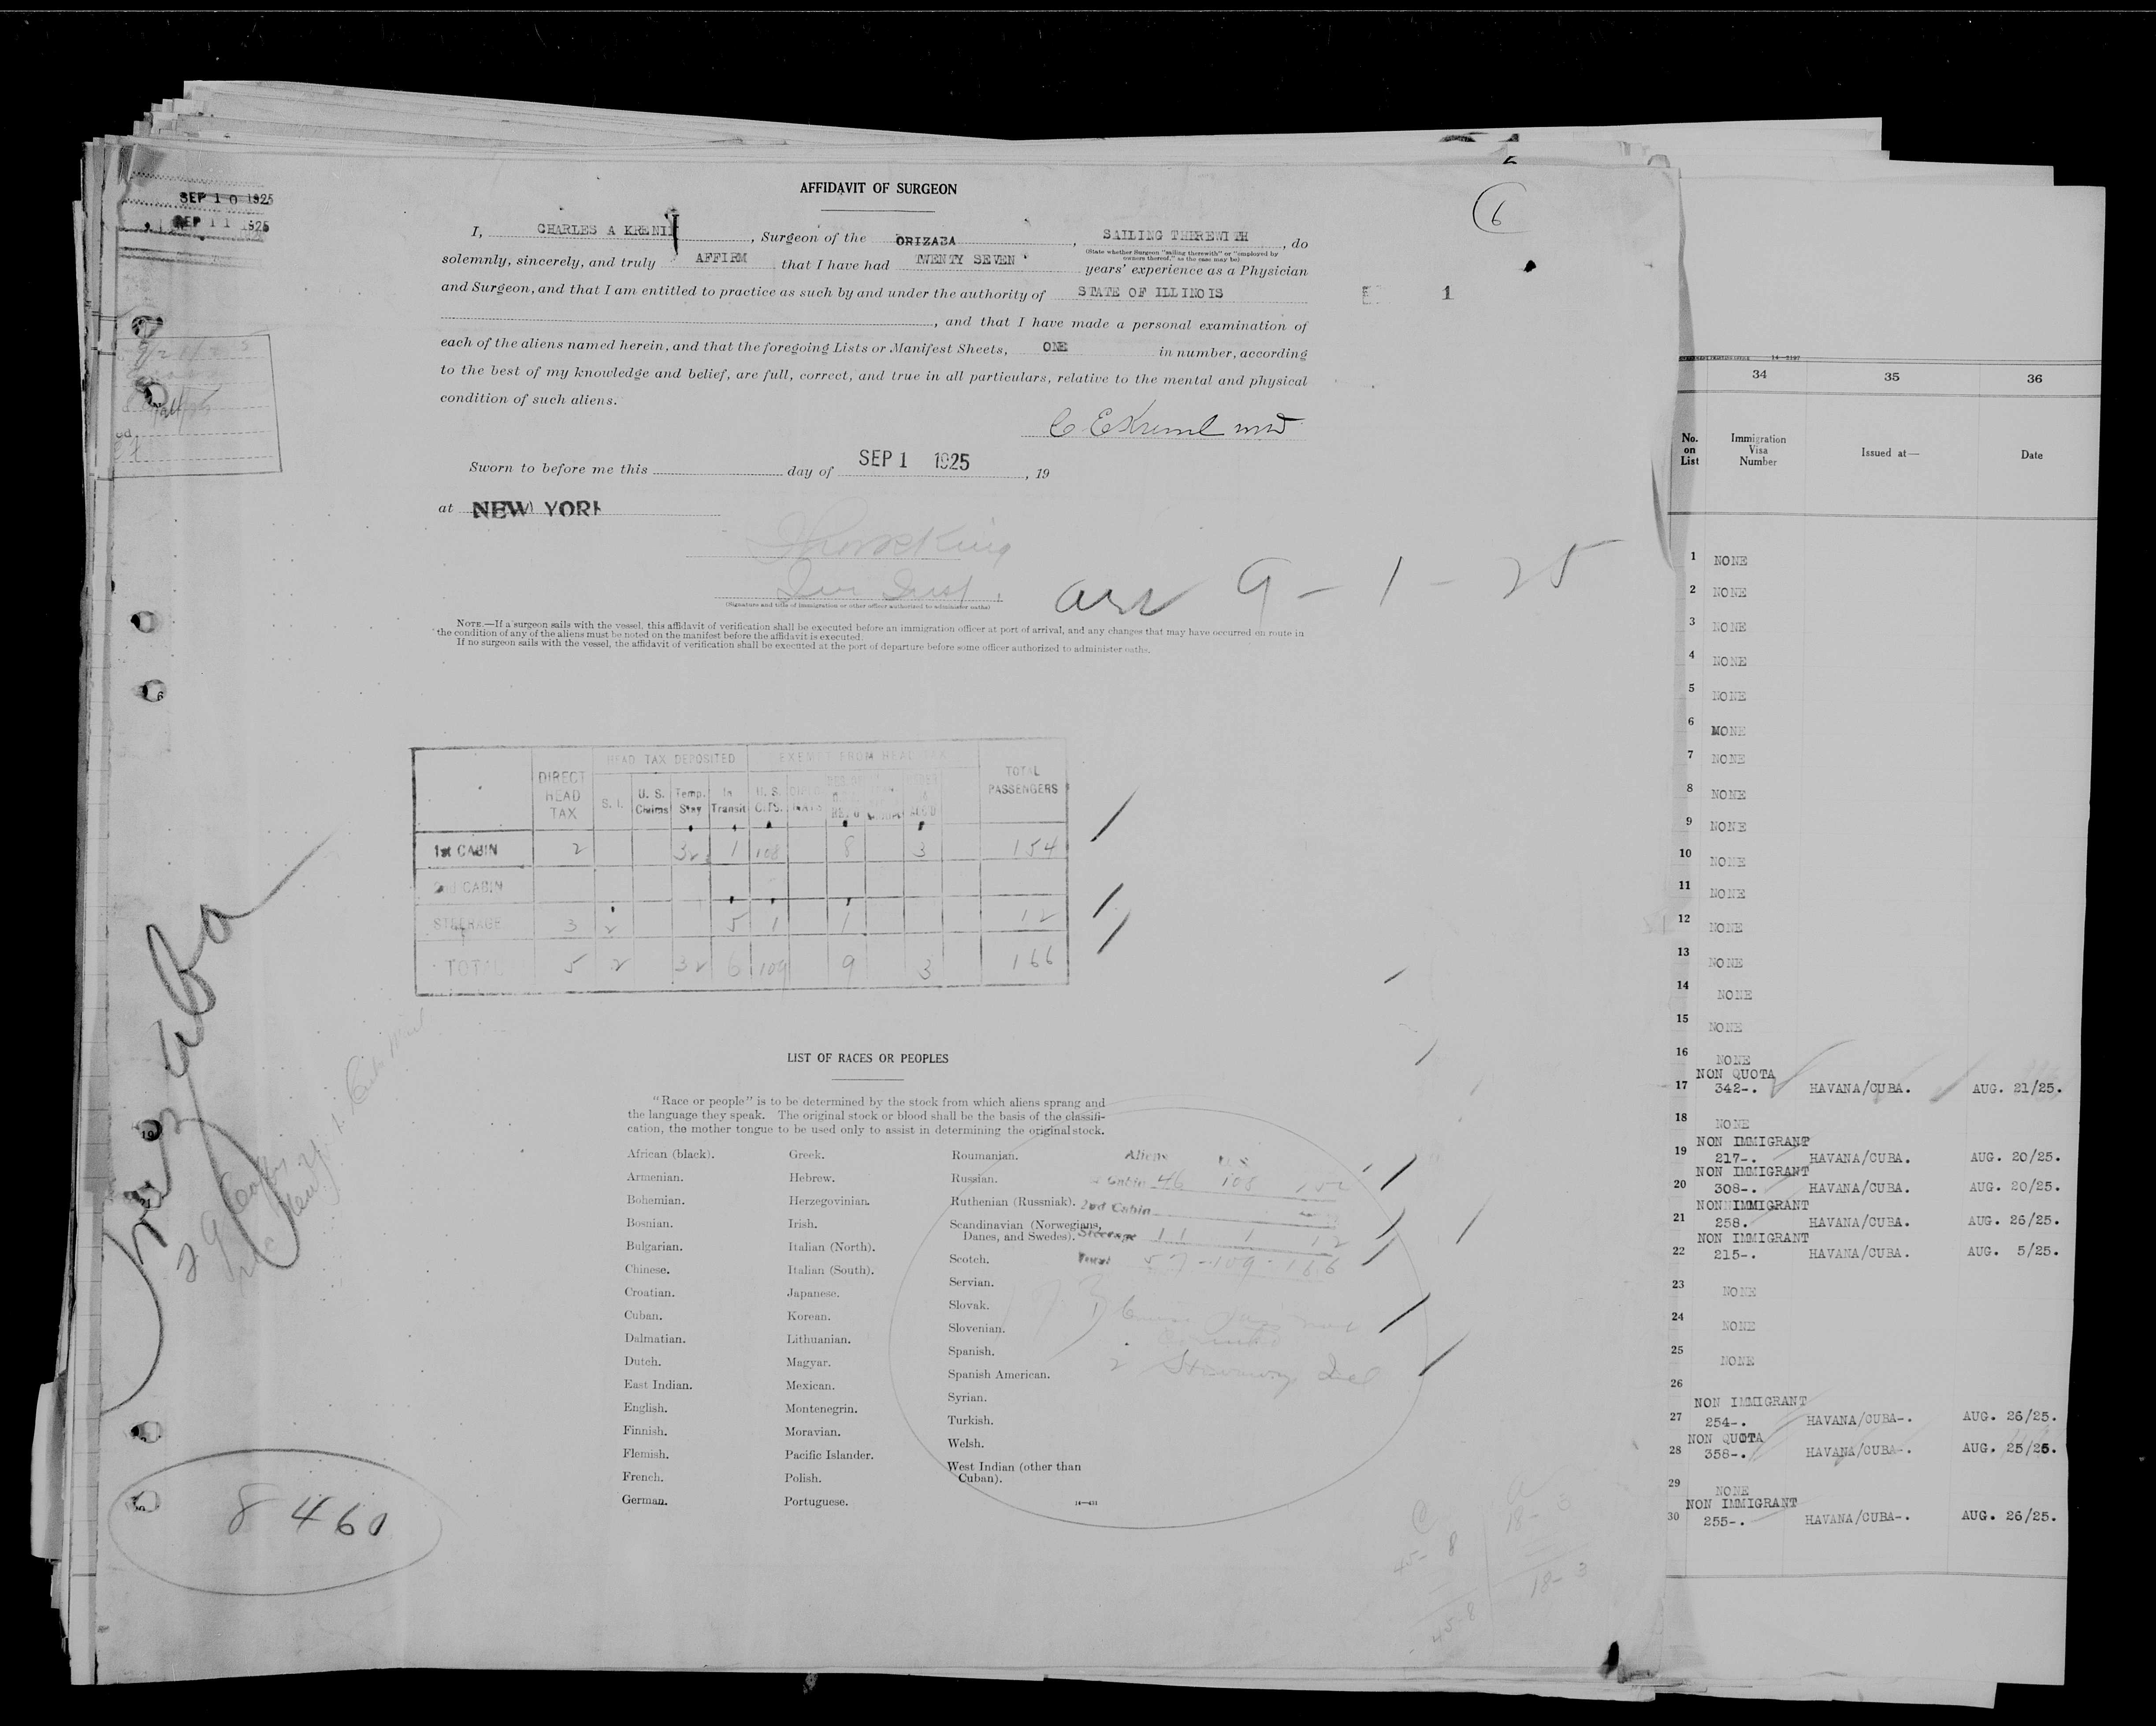 SEP 10 1925
SEP 11 1925
6
AFFIDAVIT OF SURGEON
I, CHARLES A , Surgeon of the ORIZABA , SAILING THEREWITH , do
(State whether Surgeon "sailing therewith" or "employed by
owners thereof," as the case may be)
solemnly, sincerely, and truly AFFIRM that I have had TWENTY SEVEN years' experience as a Physician
and Surgeon, and that I am entitled to practice as such by and under the authority of STATE OF ILLINOIS
1
, and that I have made a personal examination of
each of the aliens named herein, and that the foregoing Lists or Manifest Sheets, ONE in number, according
to the best of my knowledge and belief, are full, correct, and true in all particulars, relative to the mental and physical
condition of such aliens.
Sworn to before me this day of SEP 1 1925 , 19
at NEW YORK
(Signature and title of immigration or other officer authorized to administer oaths)
arr 9-1-25
NOTE.—If a surgeon sails with the vessel, this affidavit of verification shall be executed before an immigration officer at port of arrival, and any changes that may have occurred on route in
the condition of any of the aliens must be noted on the manifest before the affidavit is executed.
If no surgeon sails with the vessel, the affidavit of verification shall be executed at the port of departure before some officer authorized to administer oaths.
HEAD TAX DEPOSITED EXEMPT FROM HEAD TAX
DIRECT HEAD TAX S. I. U. S. Claims Temp. Stay In Transit U. S. TOTAL PASSENGERS
1st CABIN 2 32 1 108 8 3 154
2nd CABIN
STEERAGE 3 2 5 1 1 12
TOTAL 5 2 32 6 109 9 3 166
Orizaba
LIST OF RACES OR PEOPLES
"Race or people" is to be determined by the stock from which aliens sprang and
the language they speak. The original stock or blood shall be the basis of the classifi-
cation, the mother tongue to be used only to assist in determining the original stock.
African (black).
Armenian.
Bohemian.
Bosnian.
Bulgarian.
Chinese.
Croatian.
Cuban.
Dalmatian.
Dutch.
East Indian.
English.
Finnish.
Flemish.
French.
German.
Greek.
Hebrew.
Herzegovinian.
Irish.
Italian (North).
Italian (South).
Japanese.
Korean.
Lithuanian.
Magyar.
Mexican.
Montenegrin.
Moravian.
Pacific Islander.
Polish.
Portuguese.
Roumanian.
Russian.
Ruthenian (Russniak).
Scandinavian (Norwegians,
Danes, and Swedes).
Scotch.
Servian.
Slovak.
Slovenian.
Spanish.
Spanish American.
Syrian.
Turkish.
Welsh.
West Indian (other than
Cuban).
14—431
Aliens U S
Cabin 46 108 154
2nd Cabin
Steerage 11 1 12
Total 57-109-166
8460
18-3
45-8
18-3
45-8
14—2197
34 35 36
No. on List
Immigration Visa Number
Issued at—
Date
1 NONE
2 NONE
3 NONE
4 NONE
5 NONE
6 NONE
7 NONE
8 NONE
9 NONE
10 NONE
11 NONE
12 NONE
13 NONE
14 NONE
15 NONE
16 NONE
NON QUOTA
17 342-. HAVANA/CUBA. AUG. 21/25.
18 NONE
NON IMMIGRANT
19 217-. HAVANA/CUBA. AUG. 20/25.
NON IMMIGRANT
20 308-. HAVANA/CUBA. AUG. 20/25.
NONNIMMIGRANT
21 258. HAVANA/CUBA. AUG. 26/25.
NON IMMIGRANT
22 215-. HAVANA/CUBA. AUG. 5/25.
23 NONE
24 NONE
25 NONE
26
NON IMMIGRANT
27 254-. HAVANA/CUBA-. AUG. 26/25.
NON QUOTA
28 358-. HAVANA/CUBA-. AUG. 25/25.
29 NONE
NON IMMIGRANT
30 255-. HAVANA/CUBA-. AUG. 26/25.